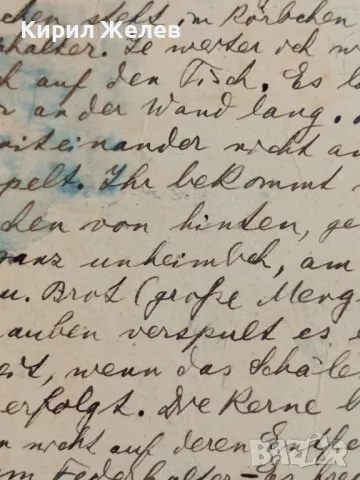 Кирил Желев
chen steht im Körbchen
halter. Je weiter ich
ch auf den Tisch. Es
er an der Wand lang.
miteinander nicht
pelt. Ihr bekommt
chen von hinten, ge
ganz unheimlich, am
u. Brot (große Meng
auben verspult es
eit, wenn das Schäl
erfolgt. Die Kerne
nicht auf deren
Federhalter - Es
bazar